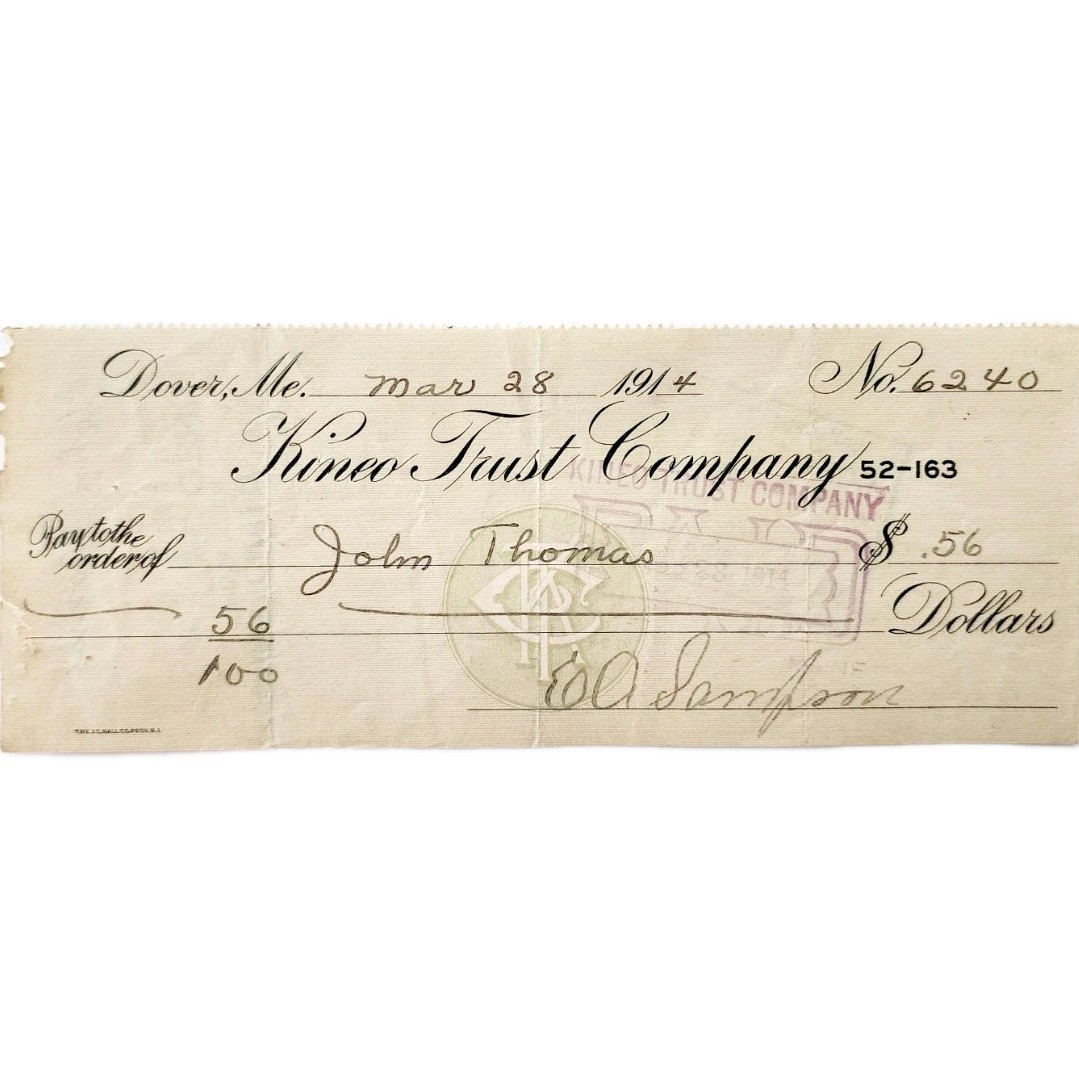 Dover, Me. Mar 28 1914 No. 6240
Kineo Trust Company 52-163
KINEO TRUST COMPANY
PAID
Pay to the order of John Thomas $ .56
56/100 Dollars
E A Sampson
THE J.C. HALL CO. PROV. R.I.